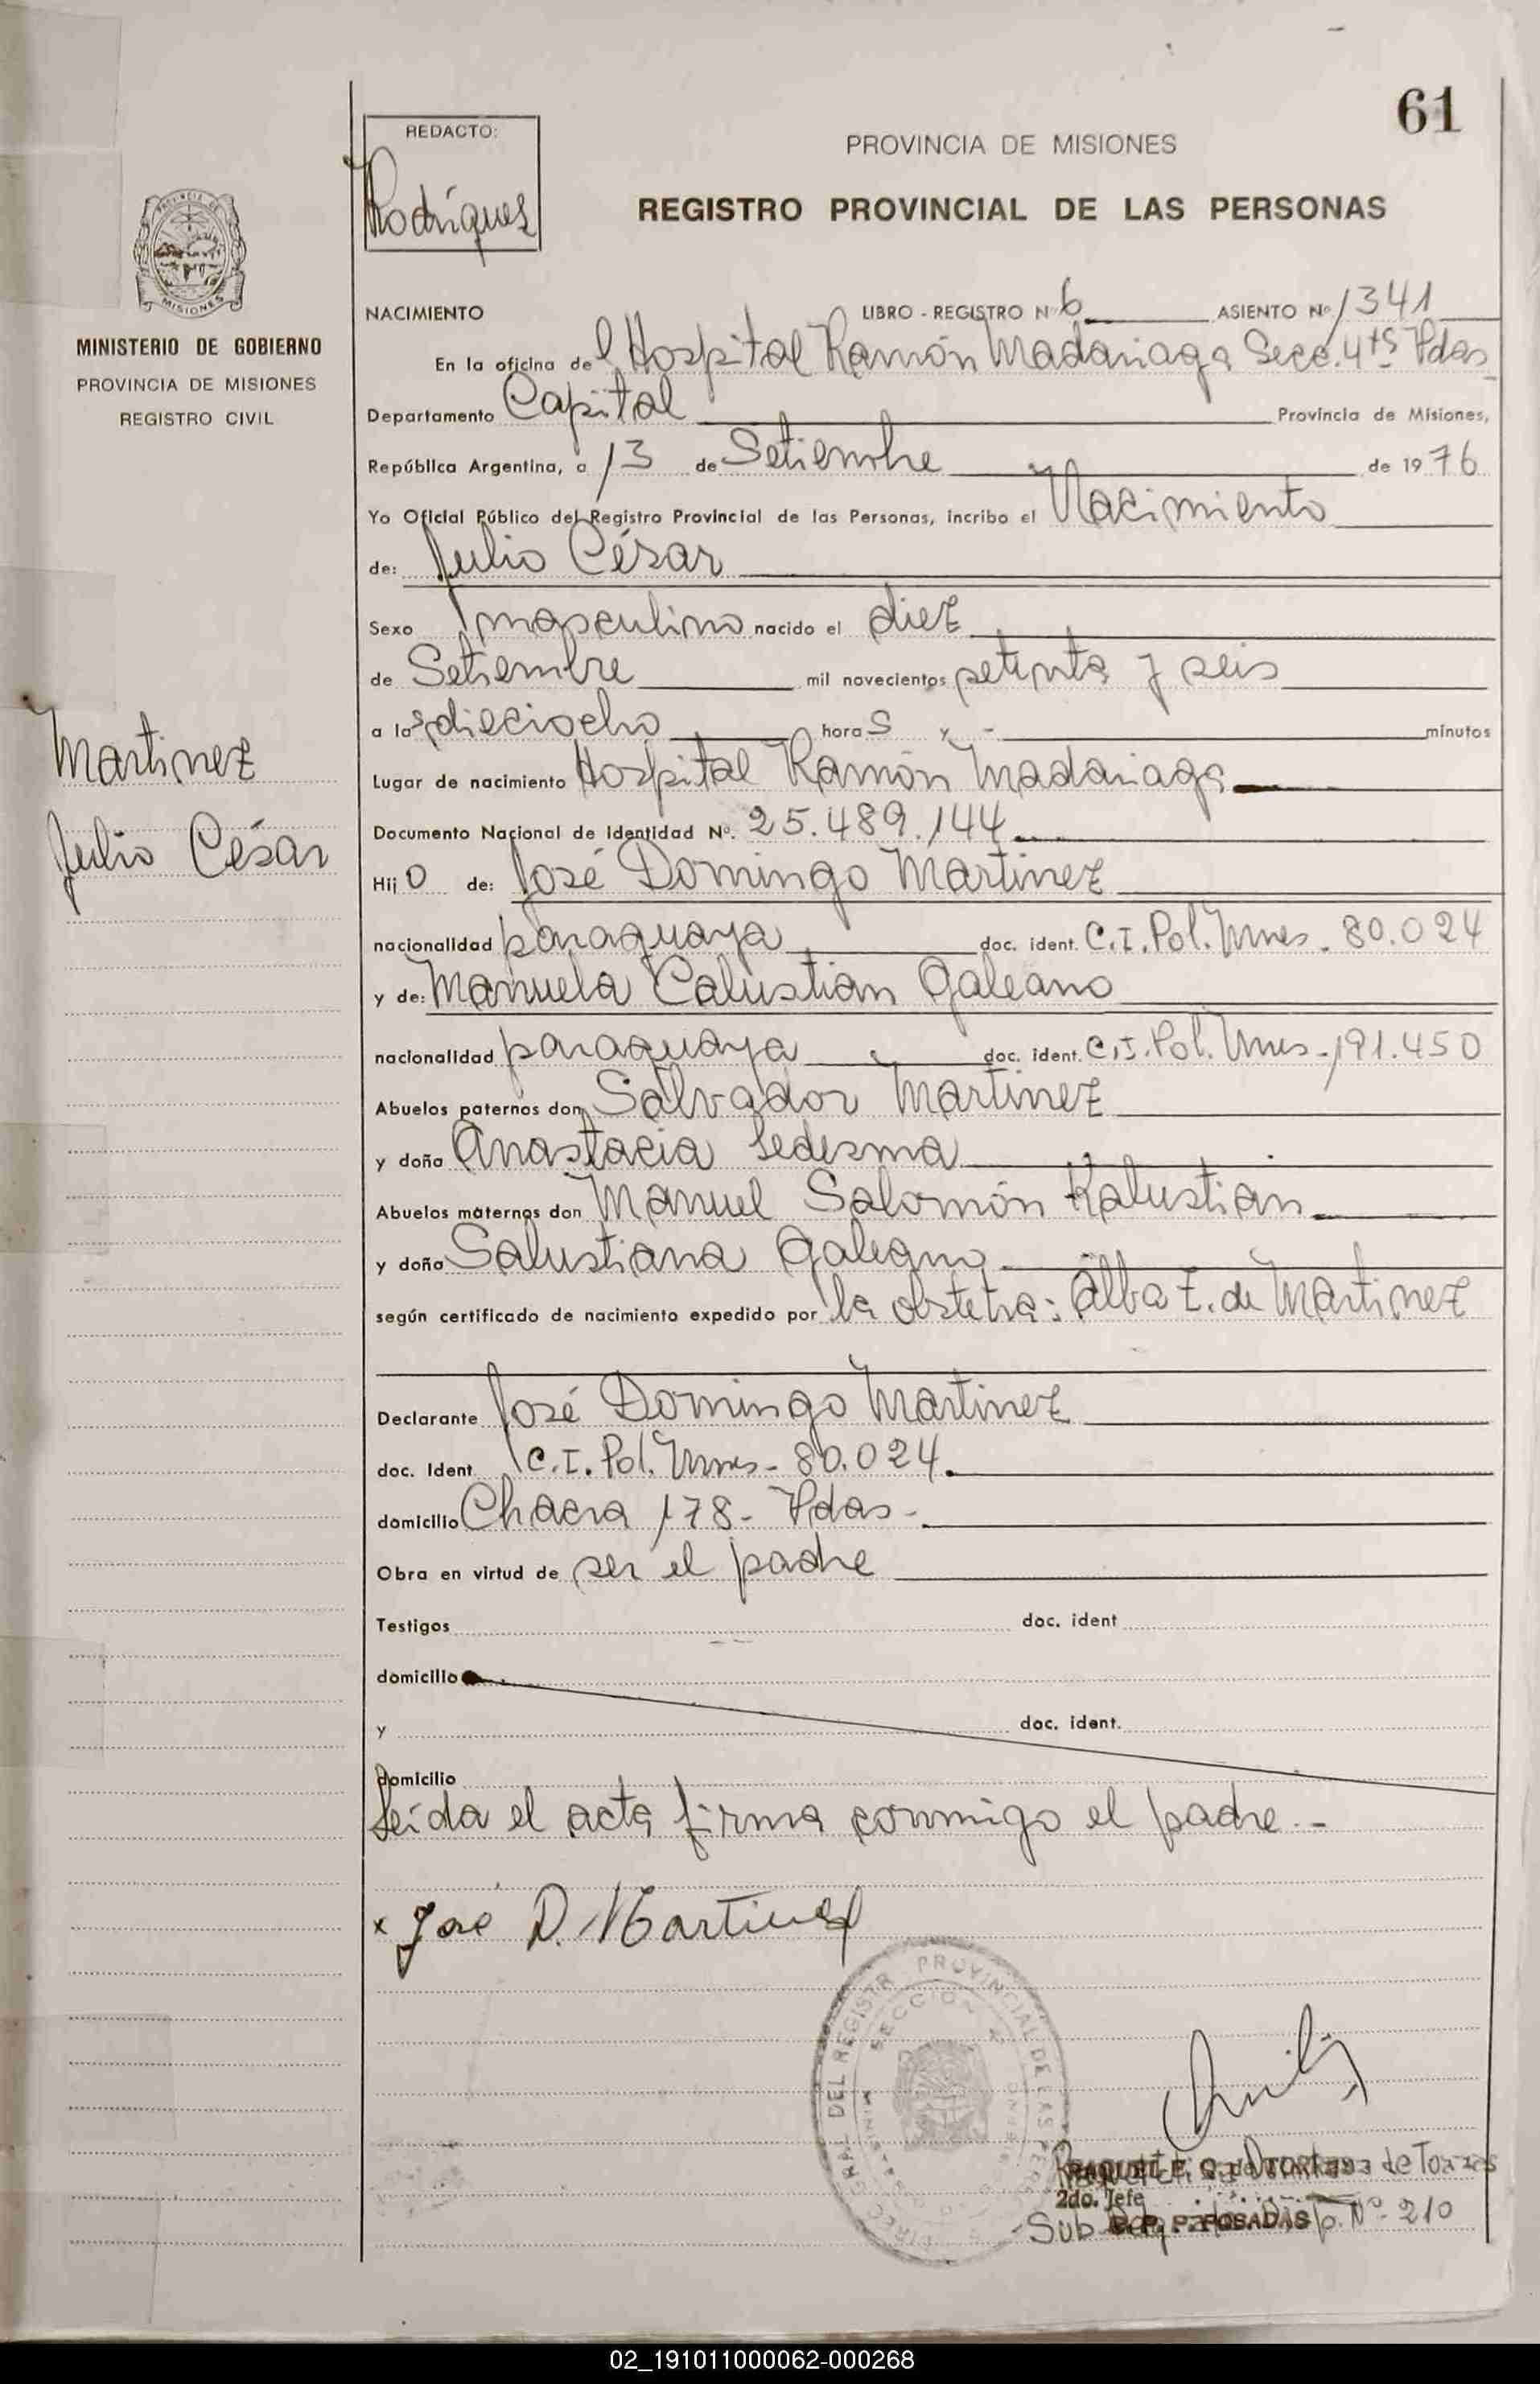 61
REDACTO:
Rodríguez
PROVINCIA DE MISIONES
REGISTRO PROVINCIAL DE LAS PERSONAS
MISIONES
MINISTERIO DE GOBIERNO
PROVINCIA DE MISIONES
REGISTRO CIVIL
NACIMIENTO LIBRO - REGISTRO Nº 6 ASIENTO Nº 1341
En la oficina del Hospital Ramón Madariaga Secc. 4ta Pdas
Departamento Capital Provincia de Misiones,
República Argentina, a 13 de Setiembre de 1976
Yo Oficial Público del Registro Provincial de las Personas, incribo el Nacimiento
de: Julio César
Sexo masculino nacido el diez
de Setiembre mil novecientos setenta y seis
a las dieciocho horas y - minutos
Martinez
Julio César
Lugar de nacimiento Hospital Ramón Madariaga
Documento Nacional de Identidad Nº. 25.489.144
Hijo de: José Domingo Martinez
nacionalidad paraguaya doc. ident. C.I. Pol. Mnes - 80.024
y de: Manuela Calustian Galeano
nacionalidad paraguaya doc. ident. C.I. Pol. Mnes - 191.450
Abuelos paternos don Salvador Martinez
y doña Anastacia Ledesma
Abuelos maternos don Manuel Salomón Kalustian
y doña Salustiana Galeano
según certificado de nacimiento expedido por la obstetra: Alba Z. de Martinez
Declarante José Domingo Martinez
doc. Ident C.I. Pol. Mnes - 80.024.
domicilio Chacra 178 - Pdas -
Obra en virtud de ser el padre
Testigos doc. ident
domicilio
y doc. ident.
domicilio
Leída el acta firma conmigo el padre. -
x José D. Martinez
PROVINCIAL DE LAS
DEL REGISTR
SECCION 4
de Torres
2do. Jefe
POSADAS Nº 210
02_191011000062-000268